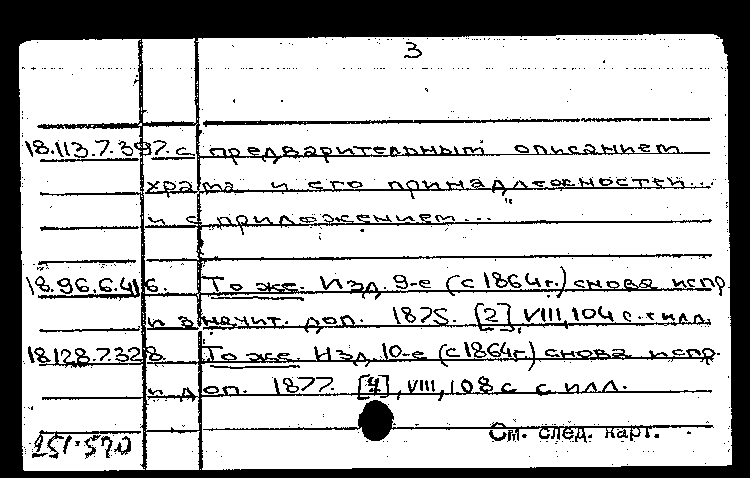 3
18.113.7.397. с предварительным описанием
храма и его принадлежностей...
и с приложением...
18.96.6.416. То же. Изд. 9-е (с 1864г.) снова испр.
и значит. доп. 1875. [2], VIII, 104 с. с илл.
18.128.7.328. То же. Изд. 10-е (с 1864г.) снова испр.
и доп. 1877. [4], VIII, 108 с. с илл.
См. след. карт.